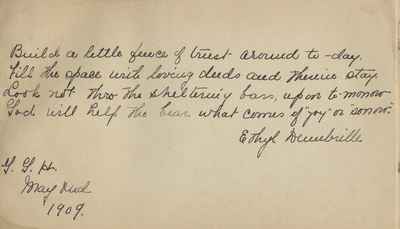 Build a little fence of trust around to-day.
Fill the space with loving deeds and therein stay
Look not thro the sheltering bars, upon to-morrow
God will help thee bear what comes of "joy" or "sorrow".
Ethyl
G. G. H.
May
1909.